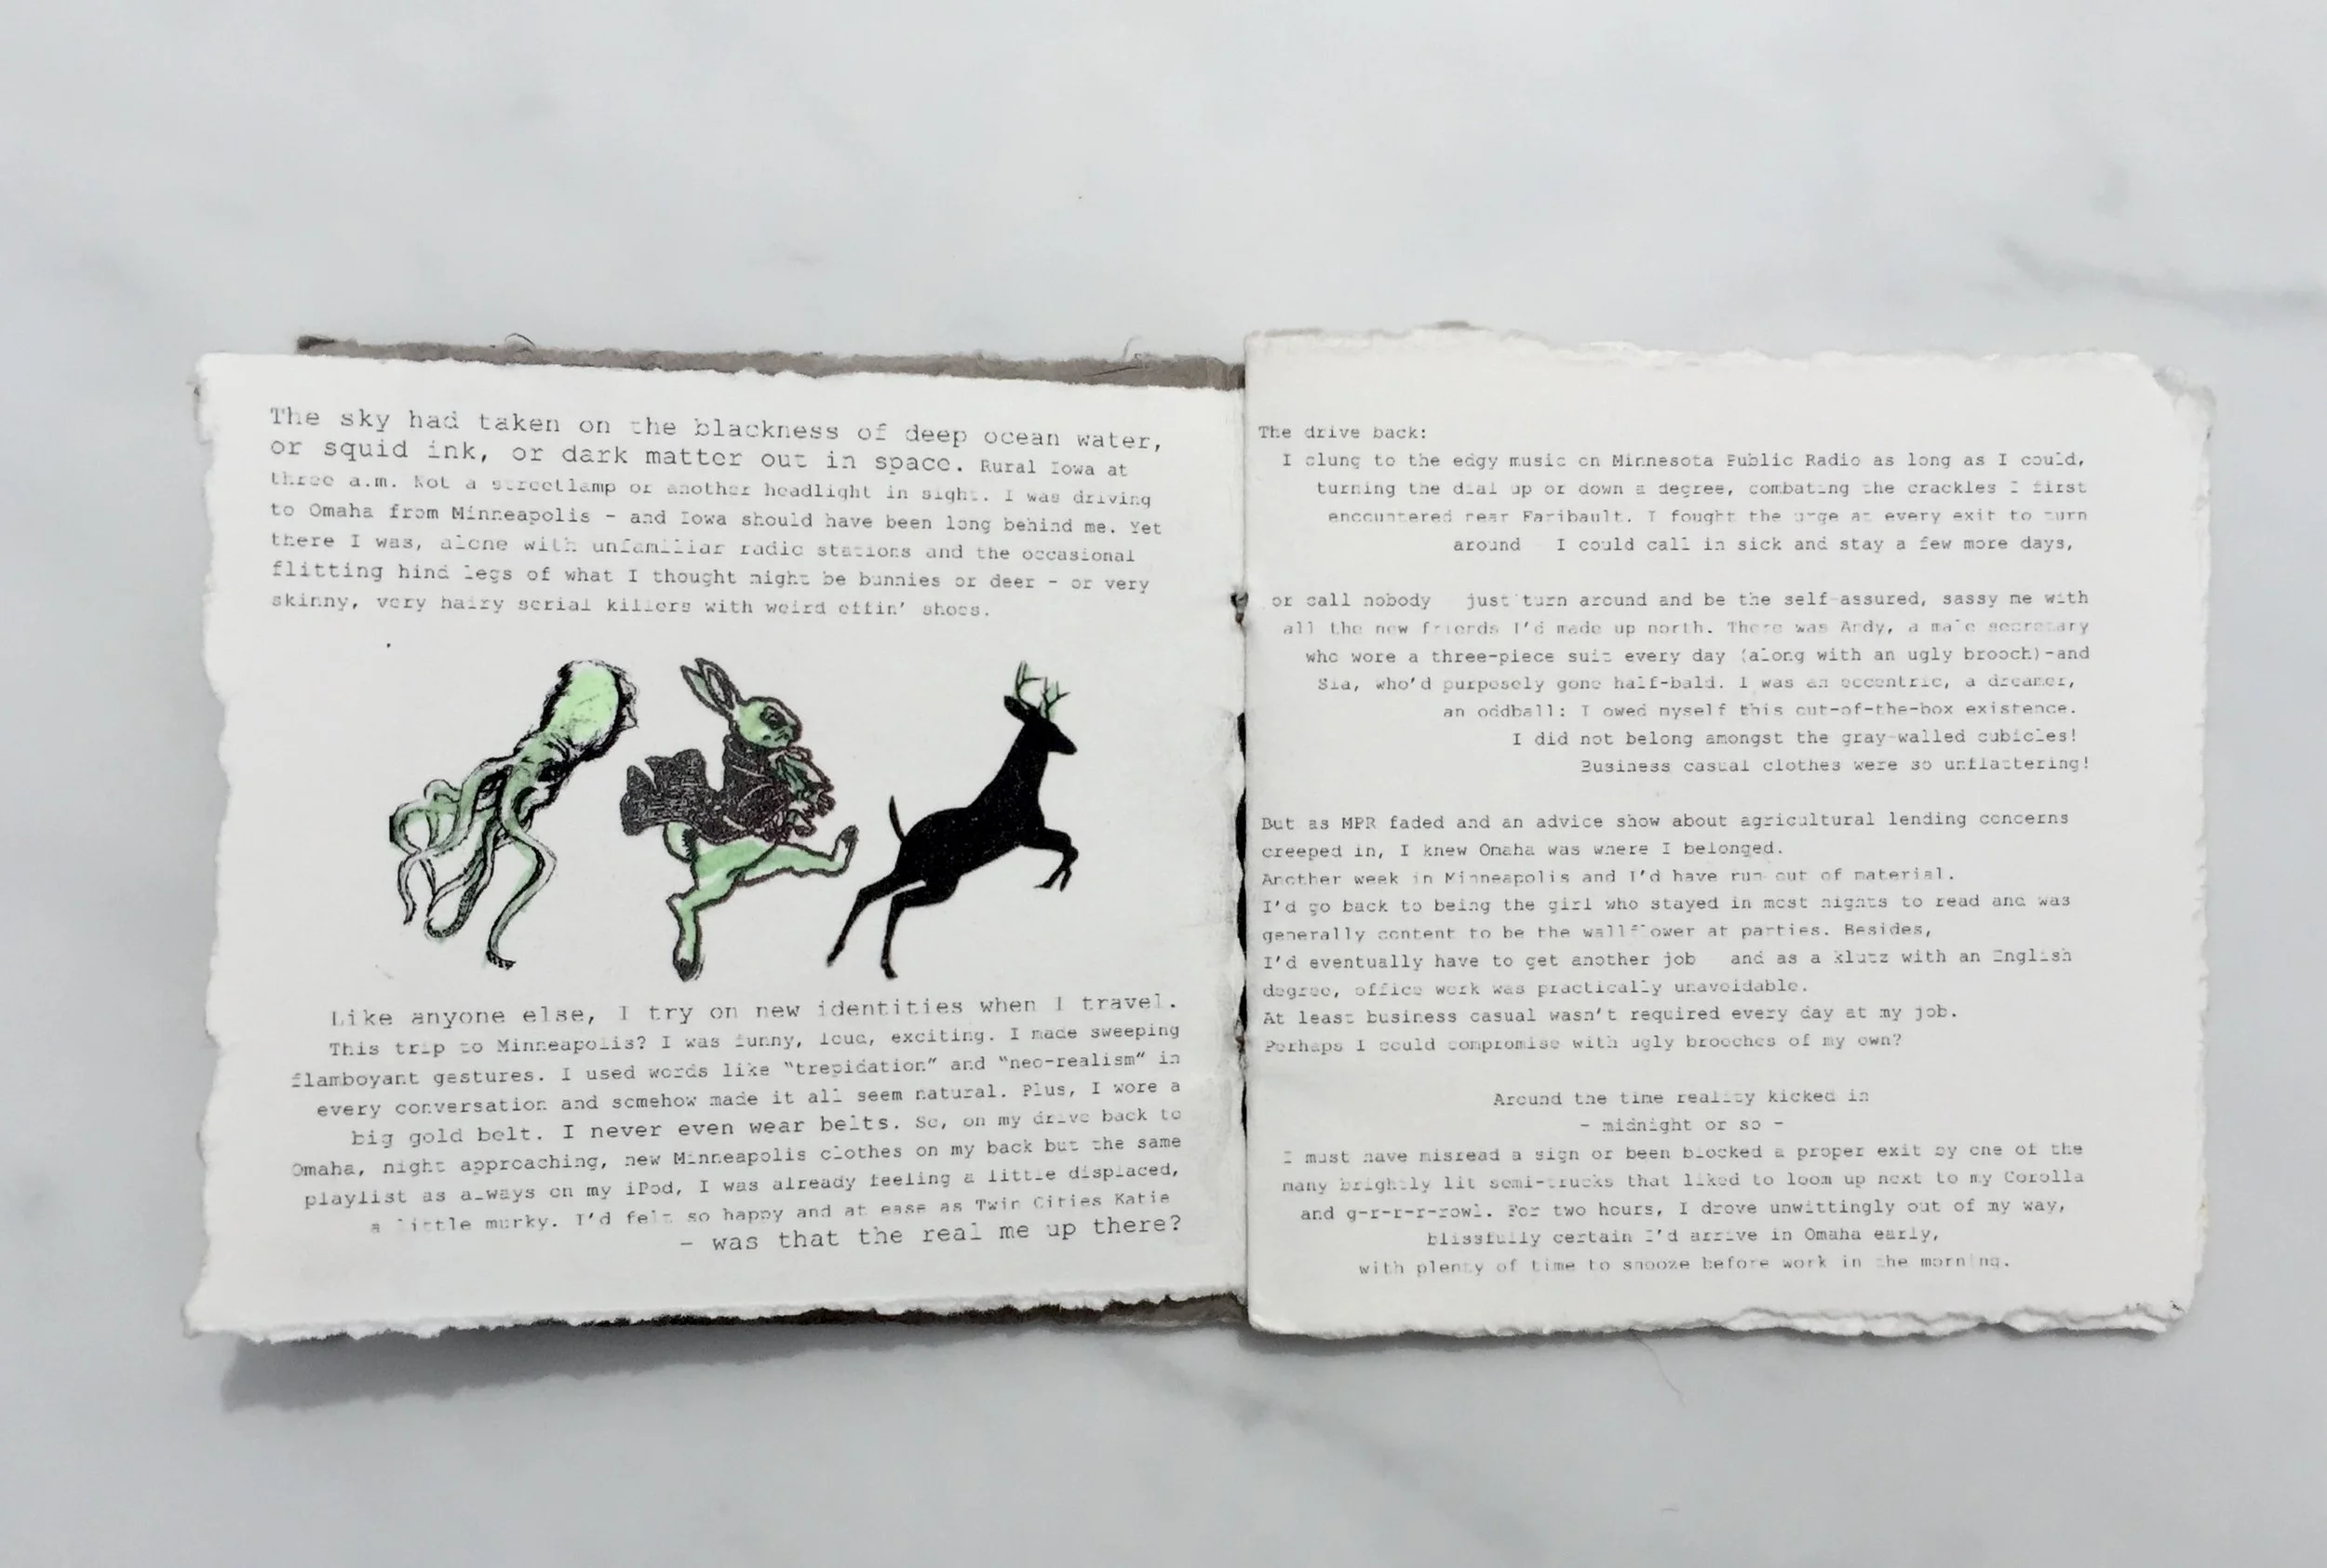 The sky had taken on the blackness of deep ocean water,
or squid ink, or dark matter out in space. Rural Iowa at
three a.m. Not a streetlamp or another headlight in sight. I was driving
to Omaha from Minneapolis - and Iowa should have been long behind me. Yet
there I was, alone with unfamiliar radio stations and the occasional
flitting hind legs of what I thought might be bunnies or deer - or very
skinny, very hairy serial killers with weird effin' shoes.
Like anyone else, I try on new identities when I travel.
This trip to Minneapolis? I was funny, loud, exciting. I made sweeping
flamboyant gestures. I used words like "trepidation" and "neo-realism" in
every conversation and somehow made it all seem natural. Plus, I wore a
big gold belt. I never even wear belts. So, on my drive back to
Omaha, night approaching, new Minneapolis clothes on my back but the same
playlist as always on my iPod, I was already feeling a little displaced,
a little murky. I'd felt so happy and at ease as Twin Cities Katie
- was that the real me up there?
The drive back:
I clung to the edgy music on Minnesota Public Radio as long as I could,
turning the dial up or down a degree, combating the crackles I first
encountered near Faribault. I fought the urge at every exit to turn
around I could call in sick and stay a few more days,
or call nobody just turn around and be the self-assured, sassy me with
all the new friends I'd made up north. There was Andy, a male secretary
who wore a three-piece suit every day (along with an ugly brooch)-and
Sia, who'd purposely gone half-bald. I was an eccentric, a dreamer,
an oddball: I owed myself this out-of-the-box existence.
I did not belong amongst the gray-walled cubicles!
Business casual clothes were so unflattering!
But as MPR faded and an advice show about agricultural lending concerns
creeped in, I knew Omaha was where I belonged.
Another week in Minneapolis and I'd have run out of material.
I'd go back to being the girl who stayed in most nights to read and was
generally content to be the wallflower at parties. Besides,
I'd eventually have to get another job and as a klutz with an English
degree, office work was practically unavoidable.
At least business casual wasn't required every day at my job.
Perhaps I could compromise with ugly brooches of my own?
Around the time reality kicked in
- midnight or so -
I must have misread a sign or been blocked a proper exit by one of the
many brightly lit semi-trucks that liked to loom up next to my Corolla
and g-r-r-r-rowl. For two hours, I drove unwittingly out of my way,
blissfully certain I'd arrive in Omaha early,
with plenty of time to snooze before work in the morning.